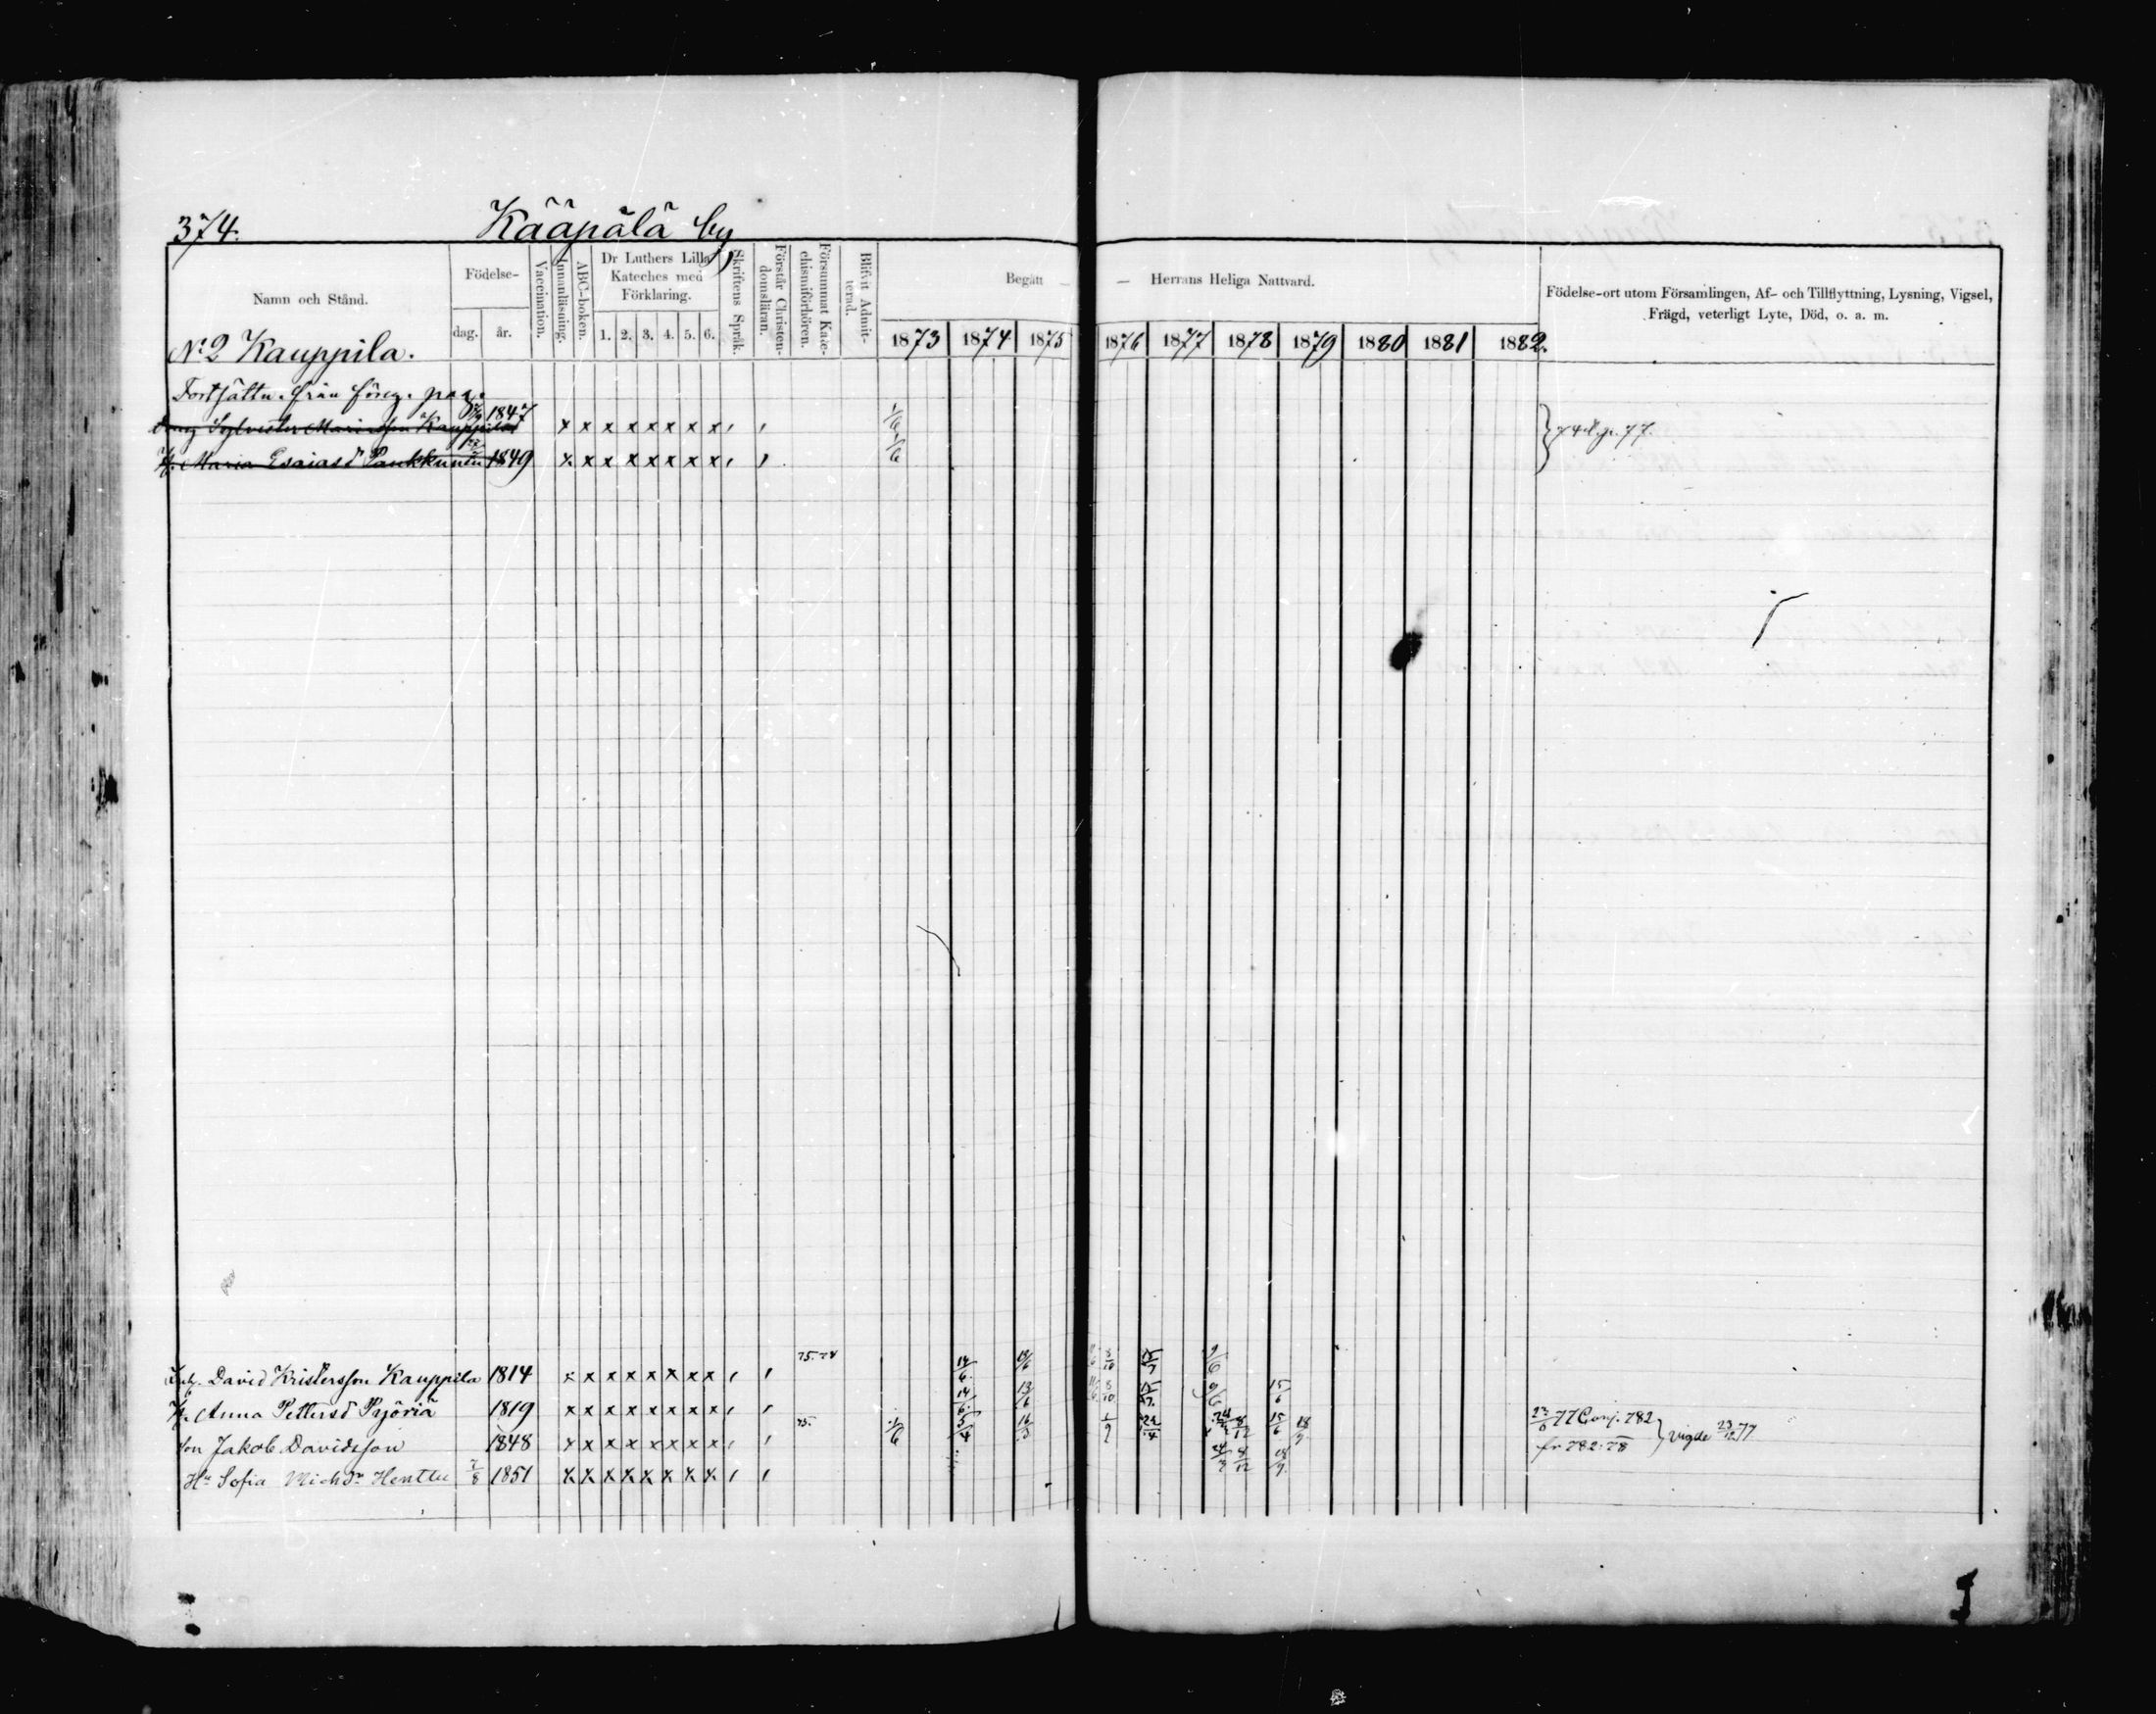 374.
Kääpälä by
Namn och Stånd.
Födelse-
dag. år.
Vaccination.
Innanläsning.
ABC-boken.
Dr Luthers Lilla
Kateches med
Förklaring.
1. 2. 3. 4. 5. 6.
Skriftens Språk.
Förstår Christen-
domsläran.
Försummat Kate-
chismiförhören.
Blifvit Admit-
terad.
Begått — — Herrans Heliga Nattvard.
1873 1874 1875 1876 1877 1878 1879 1880 1881 1882.
Födelse-ort utom Församlingen, Af- och Tillflyttning, Lysning, Vigsel,
Frägd, veterligt Lyte, Död, o. a. m.
No 2 Kauppila.
Fortsättn. från föreg. pag.
Sylvester Kauppila 1847 x x x x x x x x
H. Maria Esaiasd Paukkunen 1849 x x x x x x x x
75. 74
David Kristersson Kauppila 1814 x x x x x x x x 14/6 9/6
H. Anna Pettersd Pyöriä 1819 x x x x x x x x 14/6 13/6 8/10 9/6 15/6
75.
son Jakob Davidsson 1848 x x x x x x x x 1/6 5/4 16/3 1/9 8/12 15/6 18/9 23/6 77 Conj. 782
H:u Sofia Michd:r Henttu 7/8 1851 x x x x x x x x 8/12 18/9 fr 782. 78 } vigde 23/12 77